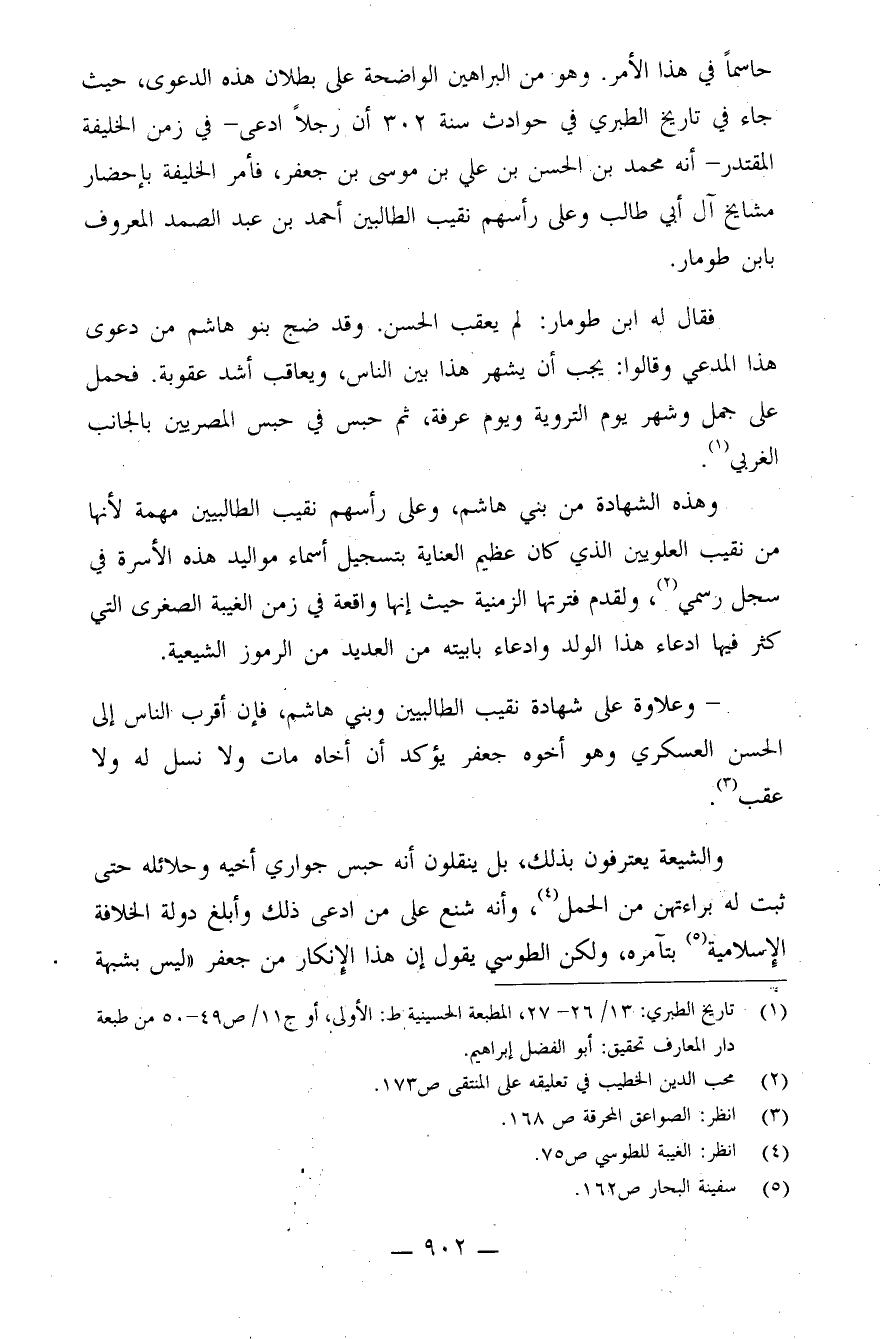 حاسماً في هذا الأمر. وهو من البراهين الواضحة على بطلان هذه الدعوى، حيث
جاء في تاريخ الطبري في حوادث سنة ٣٠٢ أن رجلاً ادعى– في زمن الخليفة
المقتدر– أنه محمد بن الحسن بن علي بن موسى بن جعفر، فأمر الخليفة بإحضار
مشايخ آل أبي طالب وعلى رأسهم نقيب الطالبين أحمد بن عبد الصمد المعروف
بابن طومار.
فقال له ابن طومار: لم يعقب الحسن. وقد ضج بنو هاشم من دعوى
هذا المدعي وقالوا: يجب أن يشهر هذا بين الناس، ويعاقب أشد عقوبة. فحمل
على جمل وشهر يوم التروية ويوم عرفة، ثم حبس في حبس المصريين بالجانب
الغربي(١).
وهذه الشهادة من بني هاشم، وعلى رأسهم نقيب الطالبيين مهمة لأنها
من نقيب العلويين الذي كان عظيم العناية بتسجيل أسماء مواليد هذه الأسرة في
سجل رسمي(٢)، ولقدم فترتها الزمنية حيث إنها واقعة في زمن الغيبة الصغرى التي
كثر فيها ادعاء هذا الولد وادعاء بابيته من العديد من الرموز الشيعية.
– وعلاوة على شهادة نقيب الطالبيين وبني هاشم، فإن أقرب الناس إلى
الحسن العسكري وهو أخوه جعفر يؤكد أن أخاه مات ولا نسل له ولا
عقب(٣).
والشيعة يعترفون بذلك، بل ينقلون أنه حبس جواري أخيه وحلائله حتى
ثبت له براءتهن من الحمل(٤)، وأنه شنع على من ادعى ذلك وأبلغ دولة الخلافة
الإسلامية(٥) بتآمره، ولكن الطوسي يقول إن هذا الإنكار من جعفر «ليس بشبهة
(١) تاريخ الطبري: ١٣/ ٢٦– ٢٧، المطبعة الحسينية ط: الأولى، أو ج١١/ ص٤٩–٥٠ من طبعة
دار المعارف تحقيق: أبو الفضل إبراهيم.
(٢) محب الدين الخطيب في تعليقه على المنتقى ص١٧٣.
(٣) انظر: الصواعق المحرقة ص ١٦٨.
(٤) انظر: الغيبة للطوسي ص٧٥.
(٥) سفينة البحار ص١٦٢.
— ٩٠٢ —